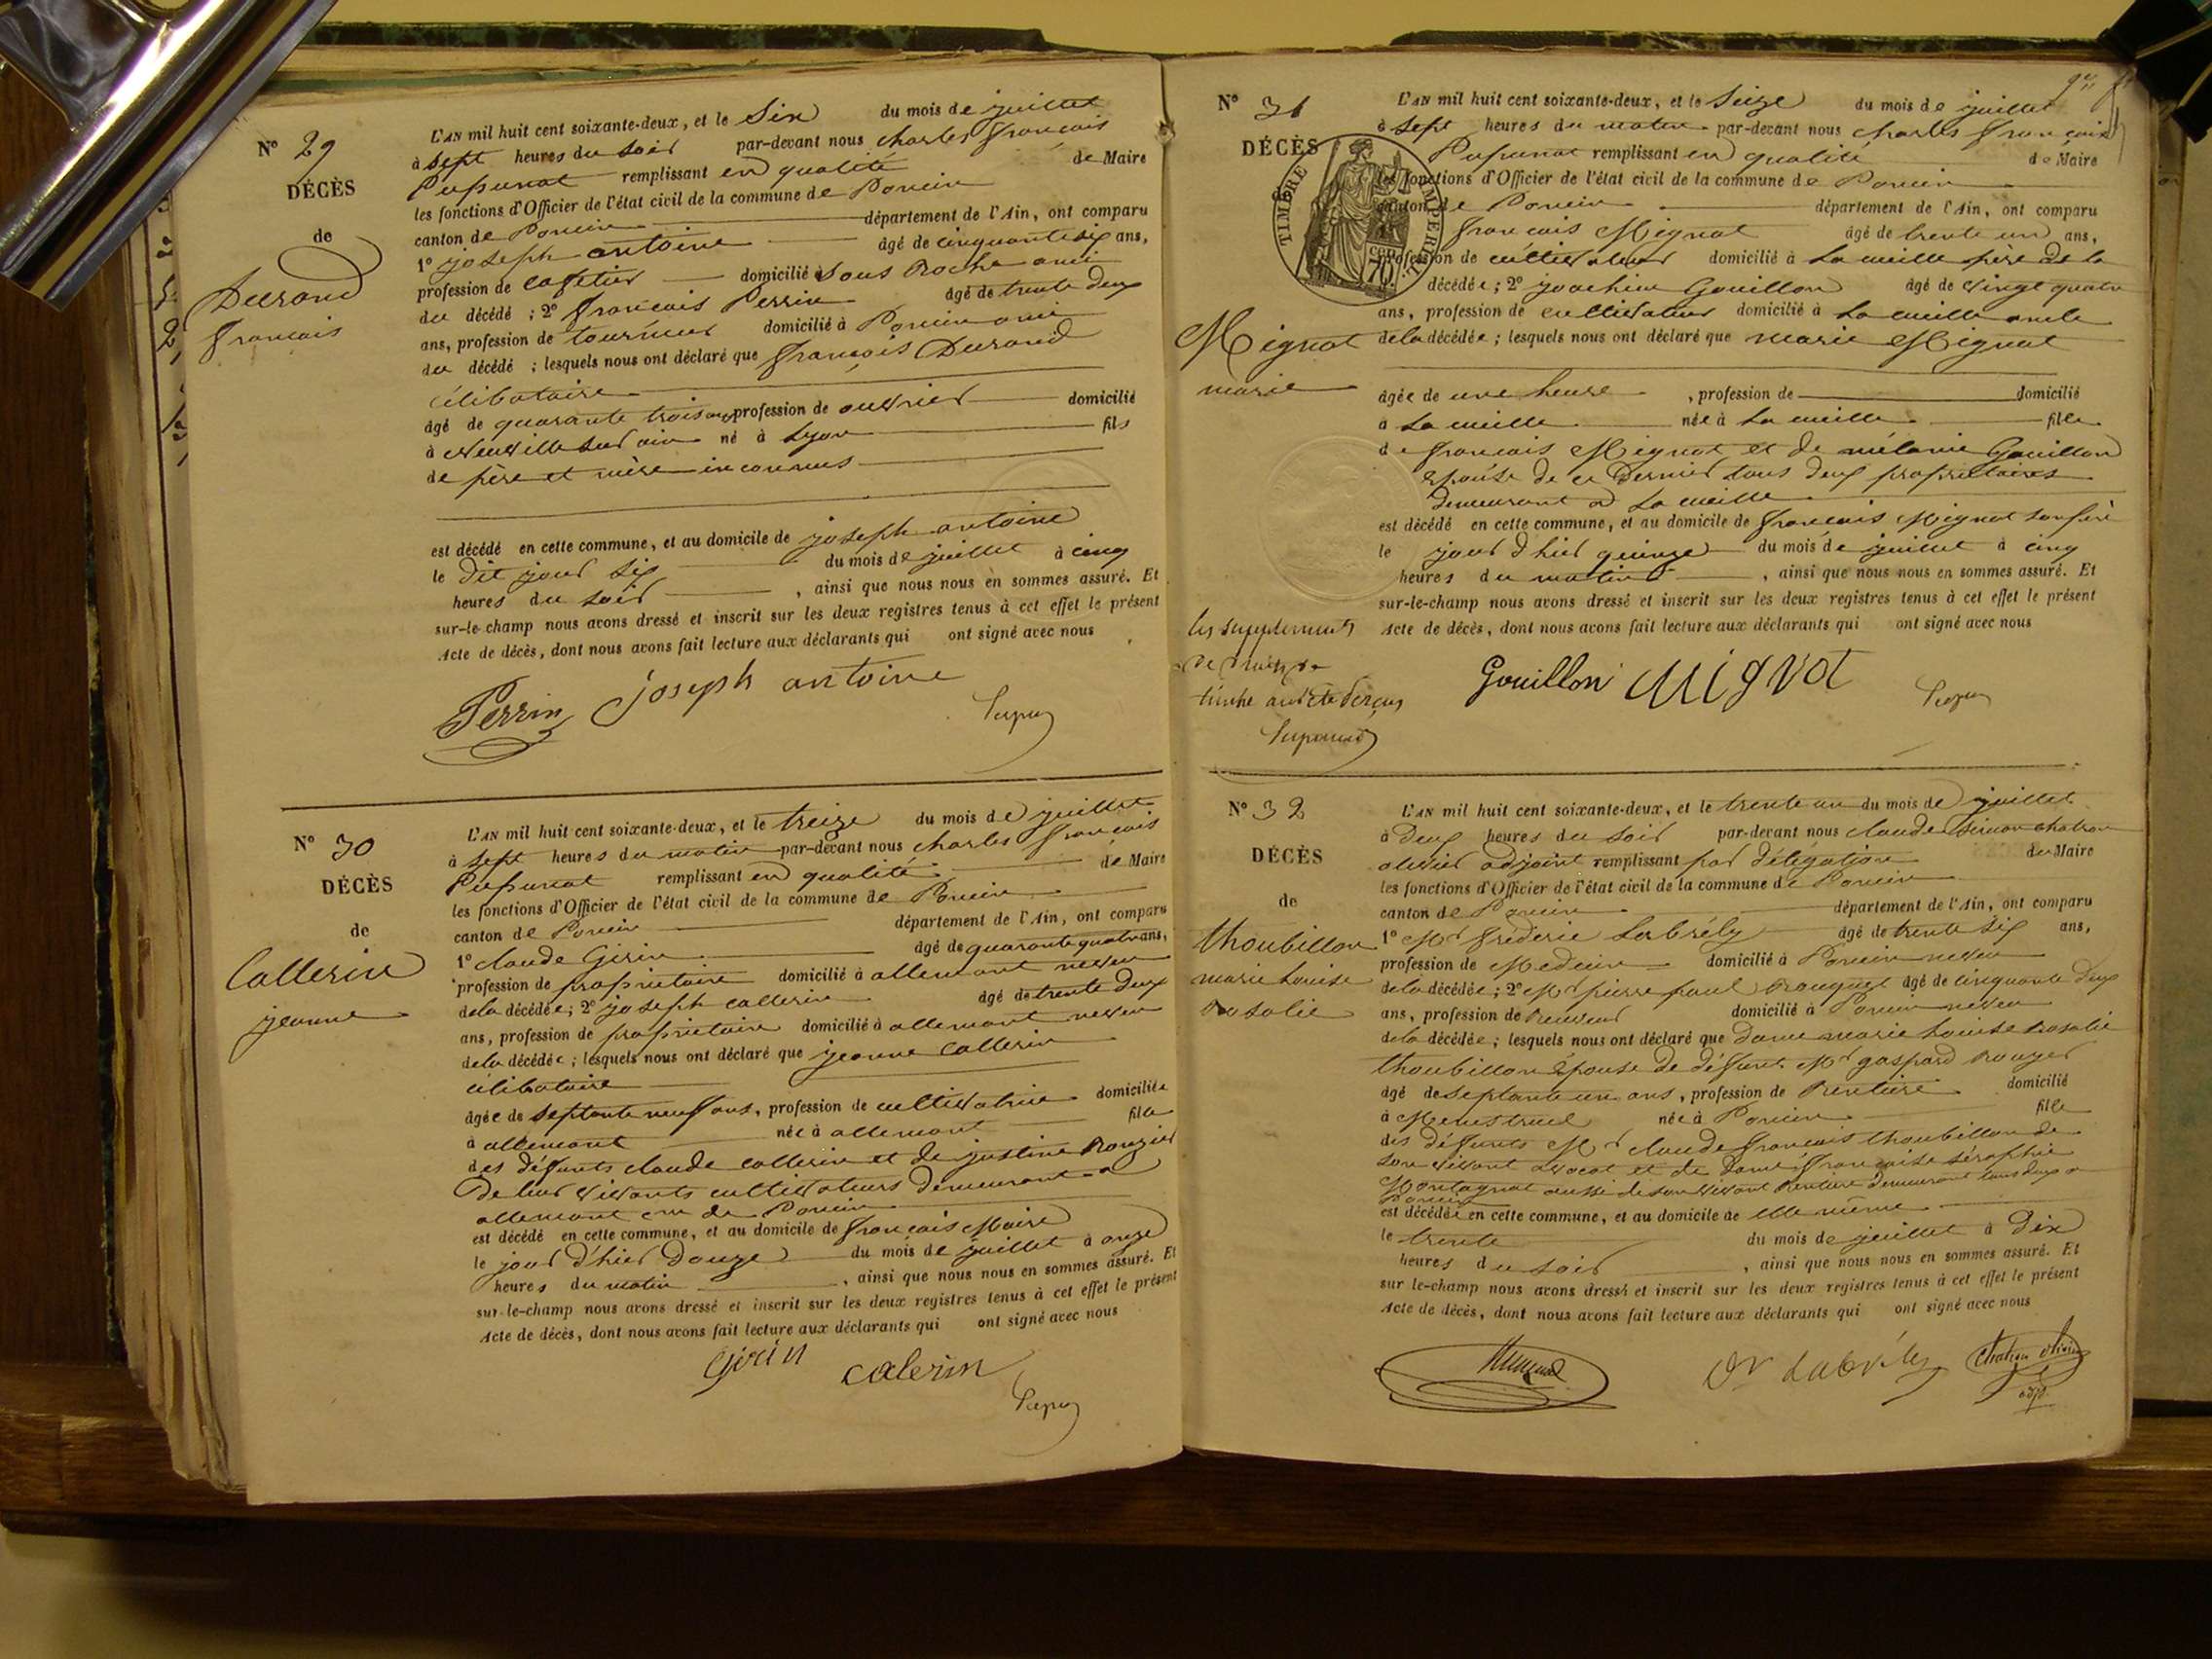 N° 29
DÉCÈS
de
Durand
francois
L'AN mil huit cent soixante-deux, et le Six du mois de juillet
à sept heures du soir par-devant nous charles francois
Pupunat remplissant en qualité de Maire
les fonctions d'Officier de l'état civil de la commune de Poncin
canton de Poncin département de l'Ain, ont comparu
1° joseph antoine âgé de cinquante six ans,
profession de cafetier domicilié à Sous Roche ami
du décédé ; 2° francois Perrin âgé de trente deux
ans, profession de tourneur domicilié à Poncin ami
du décédé ; lesquels nous ont déclaré que françois Durand
célibataire
âgé de quarante trois ans, profession de ouvrier domicilié
à Neuville sur ain né à Lyon fils
de père et mère inconnus
est décédé en cette commune, et au domicile de joseph antoine
le dit jour six du mois de juillet à cinq
heures du soir , ainsi que nous nous en sommes assuré. Et
sur-le-champ nous avons dressé et inscrit sur les deux registres tenus à cet effet le présent
Acte de décès, dont nous avons fait lecture aux déclarants qui ont signé avec nous
Perrin joseph antoine
N° 30
DÉCÈS
de
Callerin
jeanne
L'AN mil huit cent soixante-deux, et le treize du mois de juillet
à sept heures du matin par-devant nous charles francois
Pupunat remplissant en qualité de Maire
les fonctions d'Officier de l'état civil de la commune de Poncin
canton de Poncin département de l'Ain, ont comparu
1° claude Girin âgé de quarante quatre ans,
profession de proprietaire domicilié à allemont neveu
de la décédée ; 2° joseph callerin âgé de trente deux
ans, profession de proprietaire domicilié à allemont neveu
de la décédée ; lesquels nous ont déclaré que jeanne Callerin
célibataire
âgée de septante neuf ans, profession de cultivatrice domiciliée
à allemont née à allemont fille
des défunts claude callerin et de justine Rougier
de leur vivants cultivateurs demeurant à
allemont cne de Poncin
est décédé en cette commune, et au domicile de francois Maire
le jour d'hier Douze du mois de juillet à onze
heures du matin , ainsi que nous nous en sommes assuré. Et
sur-le-champ nous avons dressé et inscrit sur les deux registres tenus à cet effet le présent
Acte de décès, dont nous avons fait lecture aux déclarants qui ont signé avec nous
Girin calerin
N° 31
DÉCÈS
TIMBRE IMPERIAL
70
Mignot
marie
L'AN mil huit cent soixante-deux, et le Seize du mois de juillet
à sept heures du matin par-devant nous charles francois
Pupunat remplissant en qualité de Maire
les fonctions d'Officier de l'état civil de la commune de Poncin
canton de Poncin département de l'Ain, ont comparu
francois Mignot âgé de trente un ans,
profession de cultivateur domicilié à La cueille père de la
décédée ; 2° joachim Gouillon âgé de vingt quatre
ans, profession de cultivateur domicilié à La cueille oncle
de la décédée ; lesquels nous ont déclaré que marie Mignot
âgée de une heure , profession de domicilié
à La cueille née à La cueille fille
de francois Mignot et de mélanie Gouillon
épouse de ce dernier tous deux proprietaires
demeurant à La cueille
est décédé en cette commune, et au domicile de francois Mignot son père
le jour d'hier quinze du mois de juillet à cinq
heures du matin , ainsi que nous nous en sommes assuré. Et
sur-le-champ nous avons dressé et inscrit sur les deux registres tenus à cet effet le présent
Acte de décès, dont nous avons fait lecture aux déclarants qui ont signé avec nous
les suppléments
de
timbre ont été perçus
Gouillon MIGNOT
N° 32
DÉCÈS
de
thoubillon
marie Louise
Rosalie
L'AN mil huit cent soixante-deux, et le trente un du mois de juillet
à Deux heures du soir par-devant nous claude simon chatron
olivier adjoint remplissant par délégation du Maire
les fonctions d'Officier de l'état civil de la commune de Poncin
canton de Poncin département de l'Ain, ont comparu
1° Mr fréderic Labrély âgé de trente six ans,
profession de Medecin domicilié à Poncin neveu
de la décédée ; 2° Mr pierre paul âgé de cinquante deux
ans, profession de domicilié à Poncin neveu
de la décédée ; lesquels nous ont déclaré que Dame marie Louise Rosalie
thoubillon épouse de défunt Mr gaspard
âgé de septante un ans, profession de Rentière domicilié
à Menestruel née à Poncin fille
des défunts Mr claude francois thoubillon de
son vivant avocat et de dame francoise séraphie
Montagnat aussi de son vivant Rentière demeurant tous deux à
Poncin
est décédée en cette commune, et au domicile de elle même
le trente du mois de juillet à Dix
heures du soir , ainsi que nous nous en sommes assuré. Et
sur-le-champ nous avons dressé et inscrit sur les deux registres tenus à cet effet le présent
Acte de décès, dont nous avons fait lecture aux déclarants qui ont signé avec nous
Dr Labrély chatron olivier
adjt